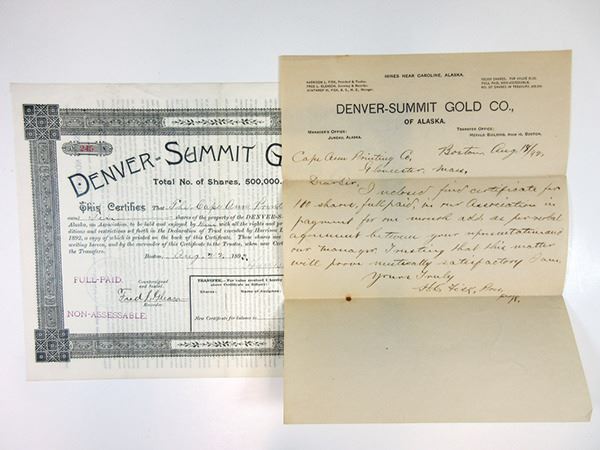 245
DENVER-SUMMIT G
Total No. of Shares, 500,000.
This Certifies That The Cape Ann
shares of the property of the DENVER-S
Alaska, an Association, to be held and enjoyed by
ditions and restrictions set forth in the Declaration of Trust executed by Harrison L
1892, a copy of which is printed on the back of this Certificate.
writing hereon, and by the surrender of this Certificate to the Trustee, when new Cer
the Transfers.
Boston, Aug. 22, 189
FULL-PAID.
NON-ASSESSABLE.
Countersigned
and Issued.
Fred L. Gleason
Recorder.
TRANSFER.—For value received I hereby
above Certificate as follows:
Shares. Name of Assignee.
New Certificate for balance to
MINES NEAR CAROLINE, ALASKA.
HARRISON L. FISK, President & Trustee.
FRED L. GLEASON, Secretary & Recorder.
500,000 SHARES. PAR VALUE $5.00.
FULL PAID, NON-ASSESSABLE.
DENVER-SUMMIT GOLD CO.,
OF ALASKA.
MANAGER'S OFFICE:
JUNEAU, ALASKA.
TRANSFER OFFICE:
HERALD BUILDING, ROOM 10, BOSTON.
Boston Aug
Cape Ann Printing Co,
Gloucester, Mass,
Dear Sir,
I inclosed find certificate for
100 shares, full paid, in our Association in
payment for one month adv. as per verbal
agreement between your representative and
our manager. Trusting that this matter
will prove mutually satisfactory I am.
Yours Truly